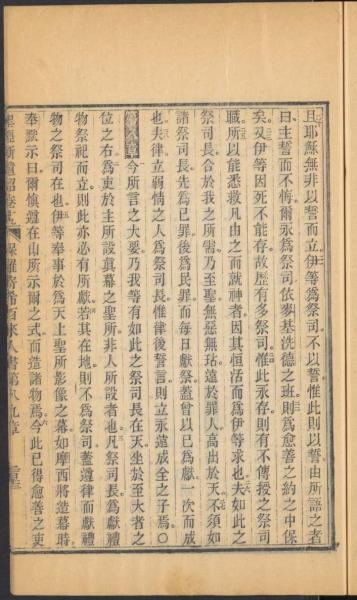 且耶穌無非以誓而立伊等為祭司不以誓惟此則以誓由所語之者
曰主誓而不悔爾永為祭司依麥基洗德之班則為愈善之約之中保
矣又伊等因死不能存故歷有多祭司惟此永存則有不傳授之祭司
職所以能悉救凡由之而就神者因其恒活而為伊等求也夫如此之
祭司長合於我之所需乃至聖無惡無玷遠於罪人高出於天不須如
諸祭司長先為己罪後為民罪而每日獻祭蓋曾以己為獻一次而成
也夫律立弱情之人為祭司長惟律後誓言則立永遠成全之子焉〇
第八章今所言之大要乃我等有如此之祭司長在天坐於至大者之
位之右為吏於主所設真幕之聖所非人所設者也凡祭司長為獻禮
物祭祀而立則此亦必有所獻若其在地則不為祭司蓋遵律而獻禮
物之祭司在也伊等奉事於為天上聖所影像之幕如摩西將造幕時
奉默示曰爾慎遵在山所示爾之式而造諸物焉今此已得愈善之吏
聖經新遺詔卷九 保羅寄希百來人書第八九章